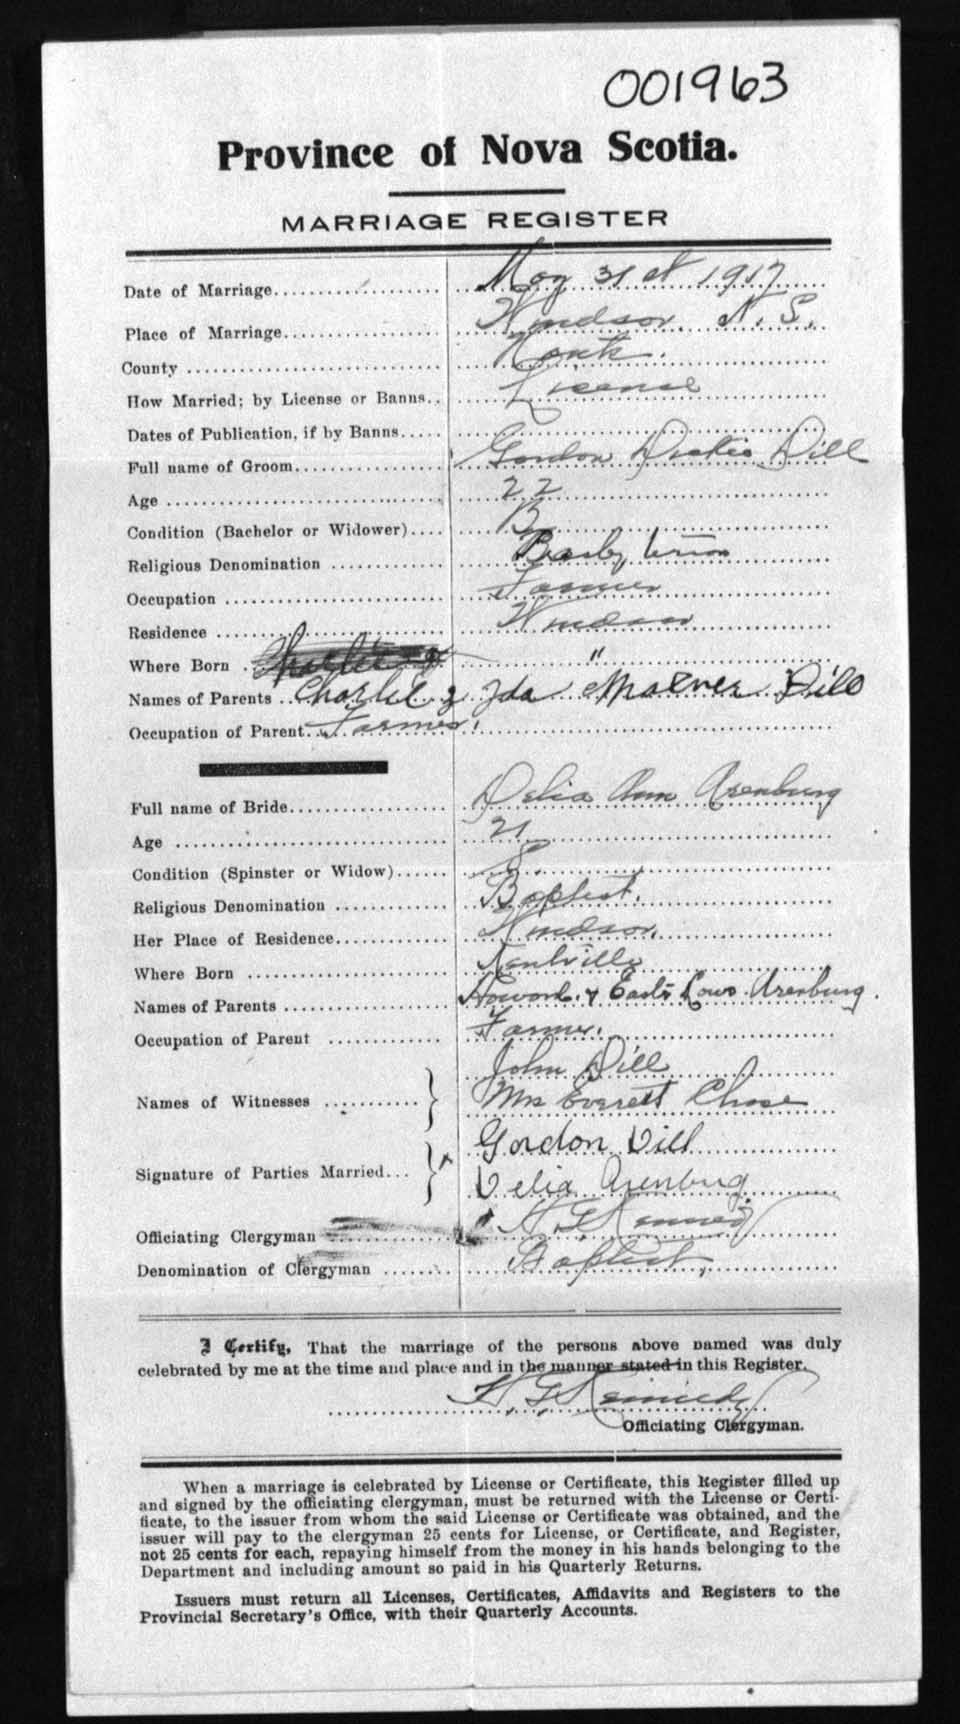 001963
Province of Nova Scotia.
MARRIAGE REGISTER
Date of Marriage May 31st 1917
Place of Marriage Windsor N.S.
County Hants.
How Married; by License or Banns License
Dates of Publication, if by Banns
Full name of Groom Gordon Dill
Age 22
Condition (Bachelor or Widower) B
Religious Denomination
Occupation Farmer
Residence Windsor
Where Born "
Names of Parents Charlie & Ida Dill
Occupation of Parent Farmer.
Full name of Bride Delia Ann Arenburg
Age 21
Condition (Spinster or Widow) S.
Religious Denomination Baptist.
Her Place of Residence Windsor.
Where Born Kentville
Names of Parents Howard & Arenburg.
Occupation of Parent Farmer.
Names of Witnesses John Dill
Mrs Everett Chase
Signature of Parties Married Gordon Dill
Delia Arenburg
Officiating Clergyman H. G. Kennedy
Denomination of Clergyman Baptist,
I Certify, That the marriage of the persons above named was duly
celebrated by me at the time and place and in the manner stated in this Register.
H. G. Kennedy
Officiating Clergyman.
When a marriage is celebrated by License or Certificate, this Register filled up
and signed by the officiating clergyman, must be returned with the License or Certi-
ficate, to the issuer from whom the said License or Certificate was obtained, and the
issuer will pay to the clergyman 25 cents for License, or Certificate, and Register,
not 25 cents for each, repaying himself from the money in his hands belonging to the
Department and including amount so paid in his Quarterly Returns.
Issuers must return all Licenses, Certificates, Affidavits and Registers to the
Provincial Secretary's Office, with their Quarterly Accounts.